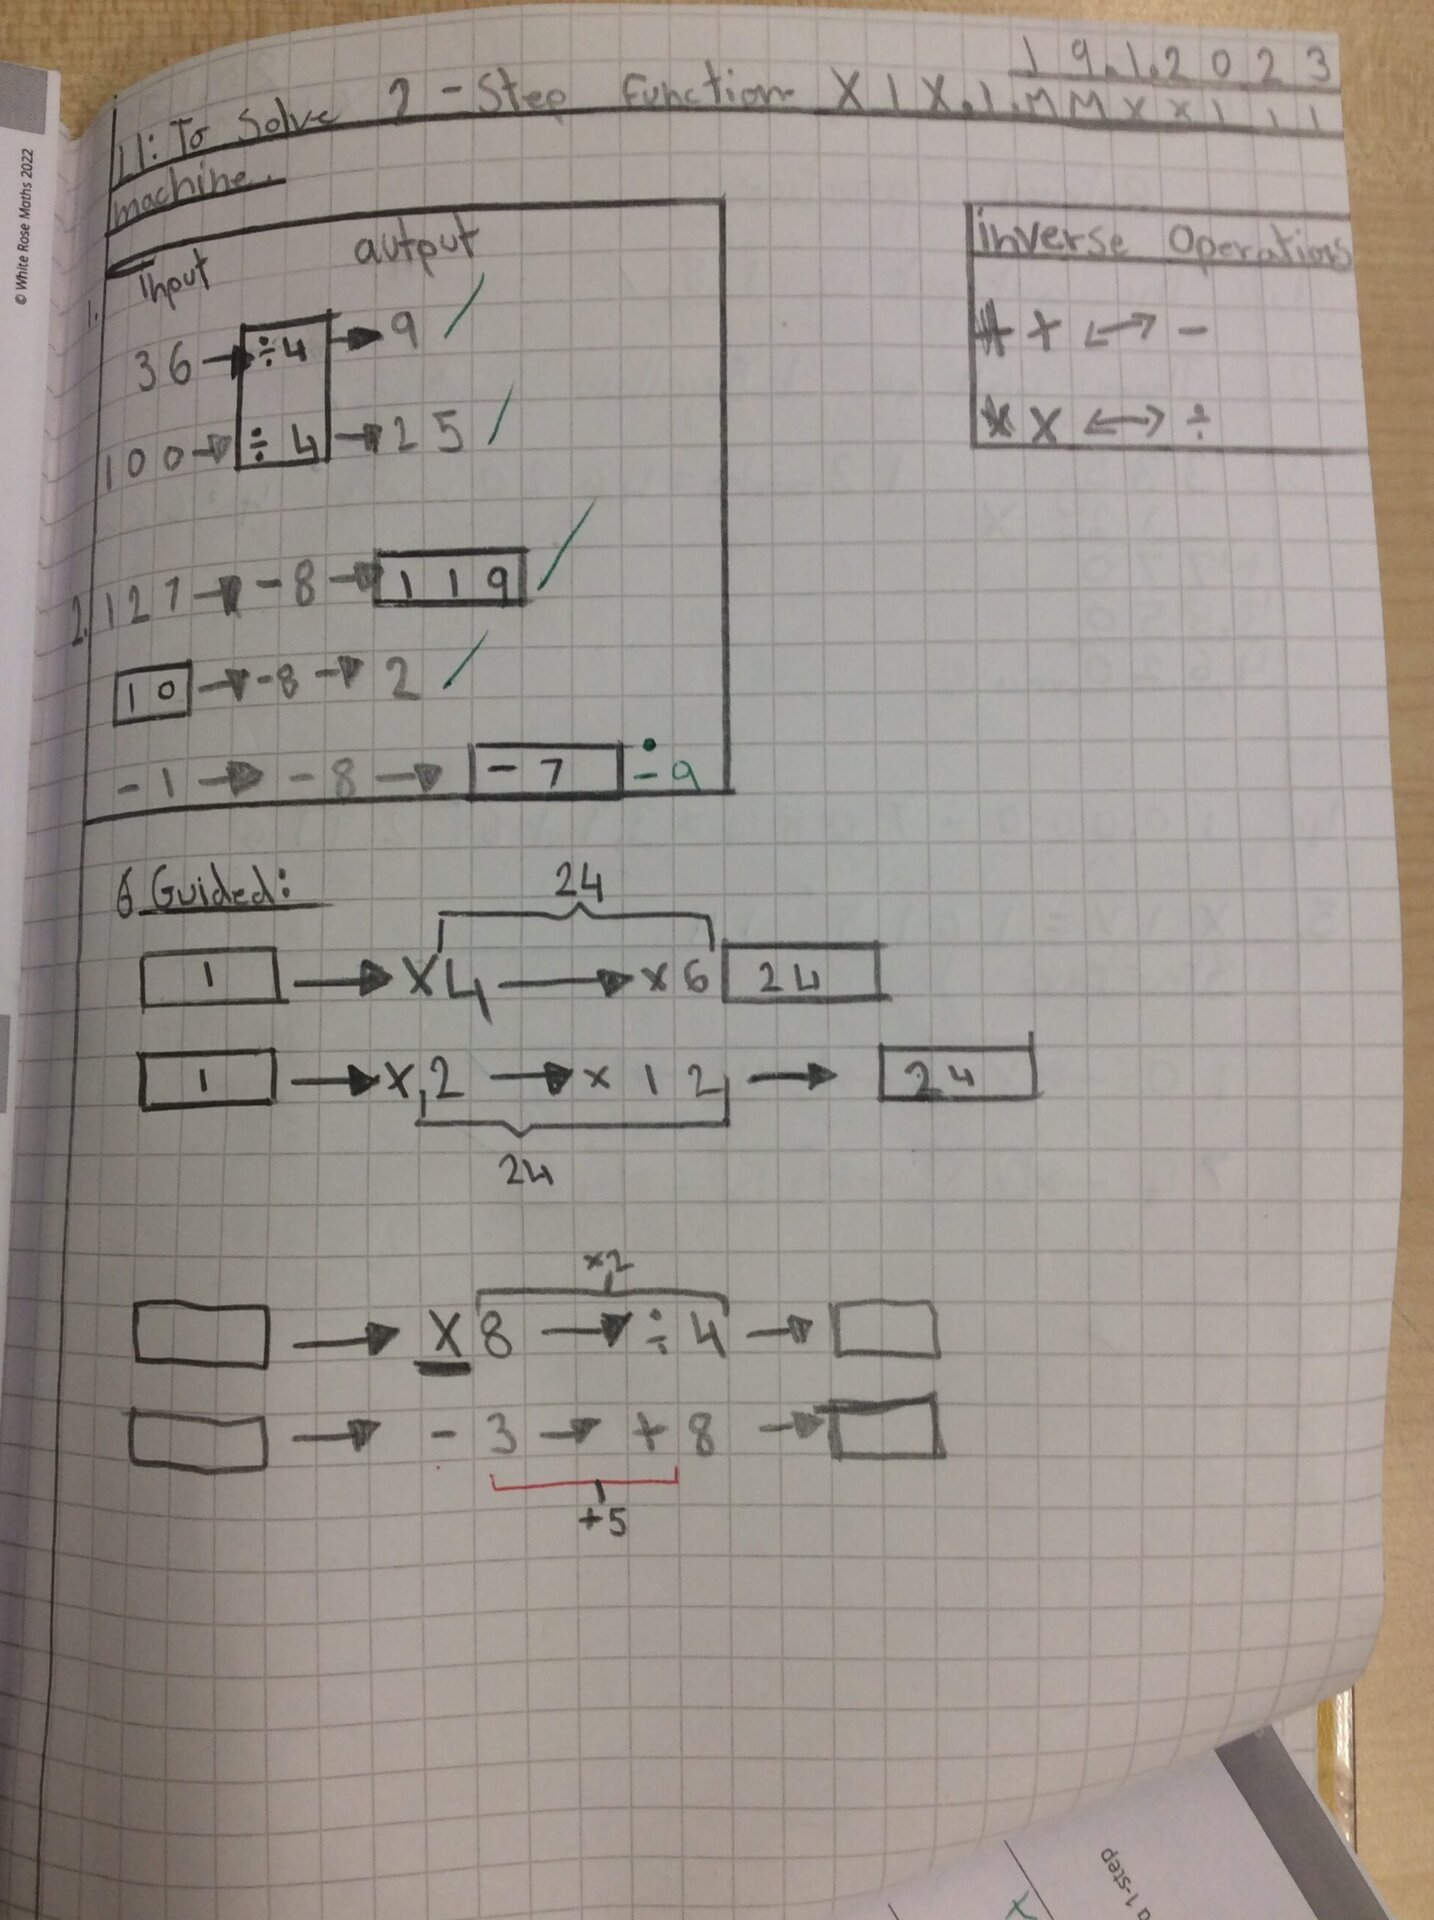 © White Rose Maths 2022
19.1.2023
LI: To Solve 2-Step Function XIX.I.MMXXIII
machine.
Input autput
1.
36 → ÷4 → 9
100 → ÷4 → 25
2. 127 → -8 → 119
10 → -8 → 2
-1 → -8 → -7 -9
inverse Operations
+ ↔ -
× ↔ ÷
6 Guided:
24
1 → ×4 → ×6 24
1 → ×2 → ×12 → 24
24
×2
→ ×8 → ÷4 →
→ -3 → +8 →
+5
a 1-step